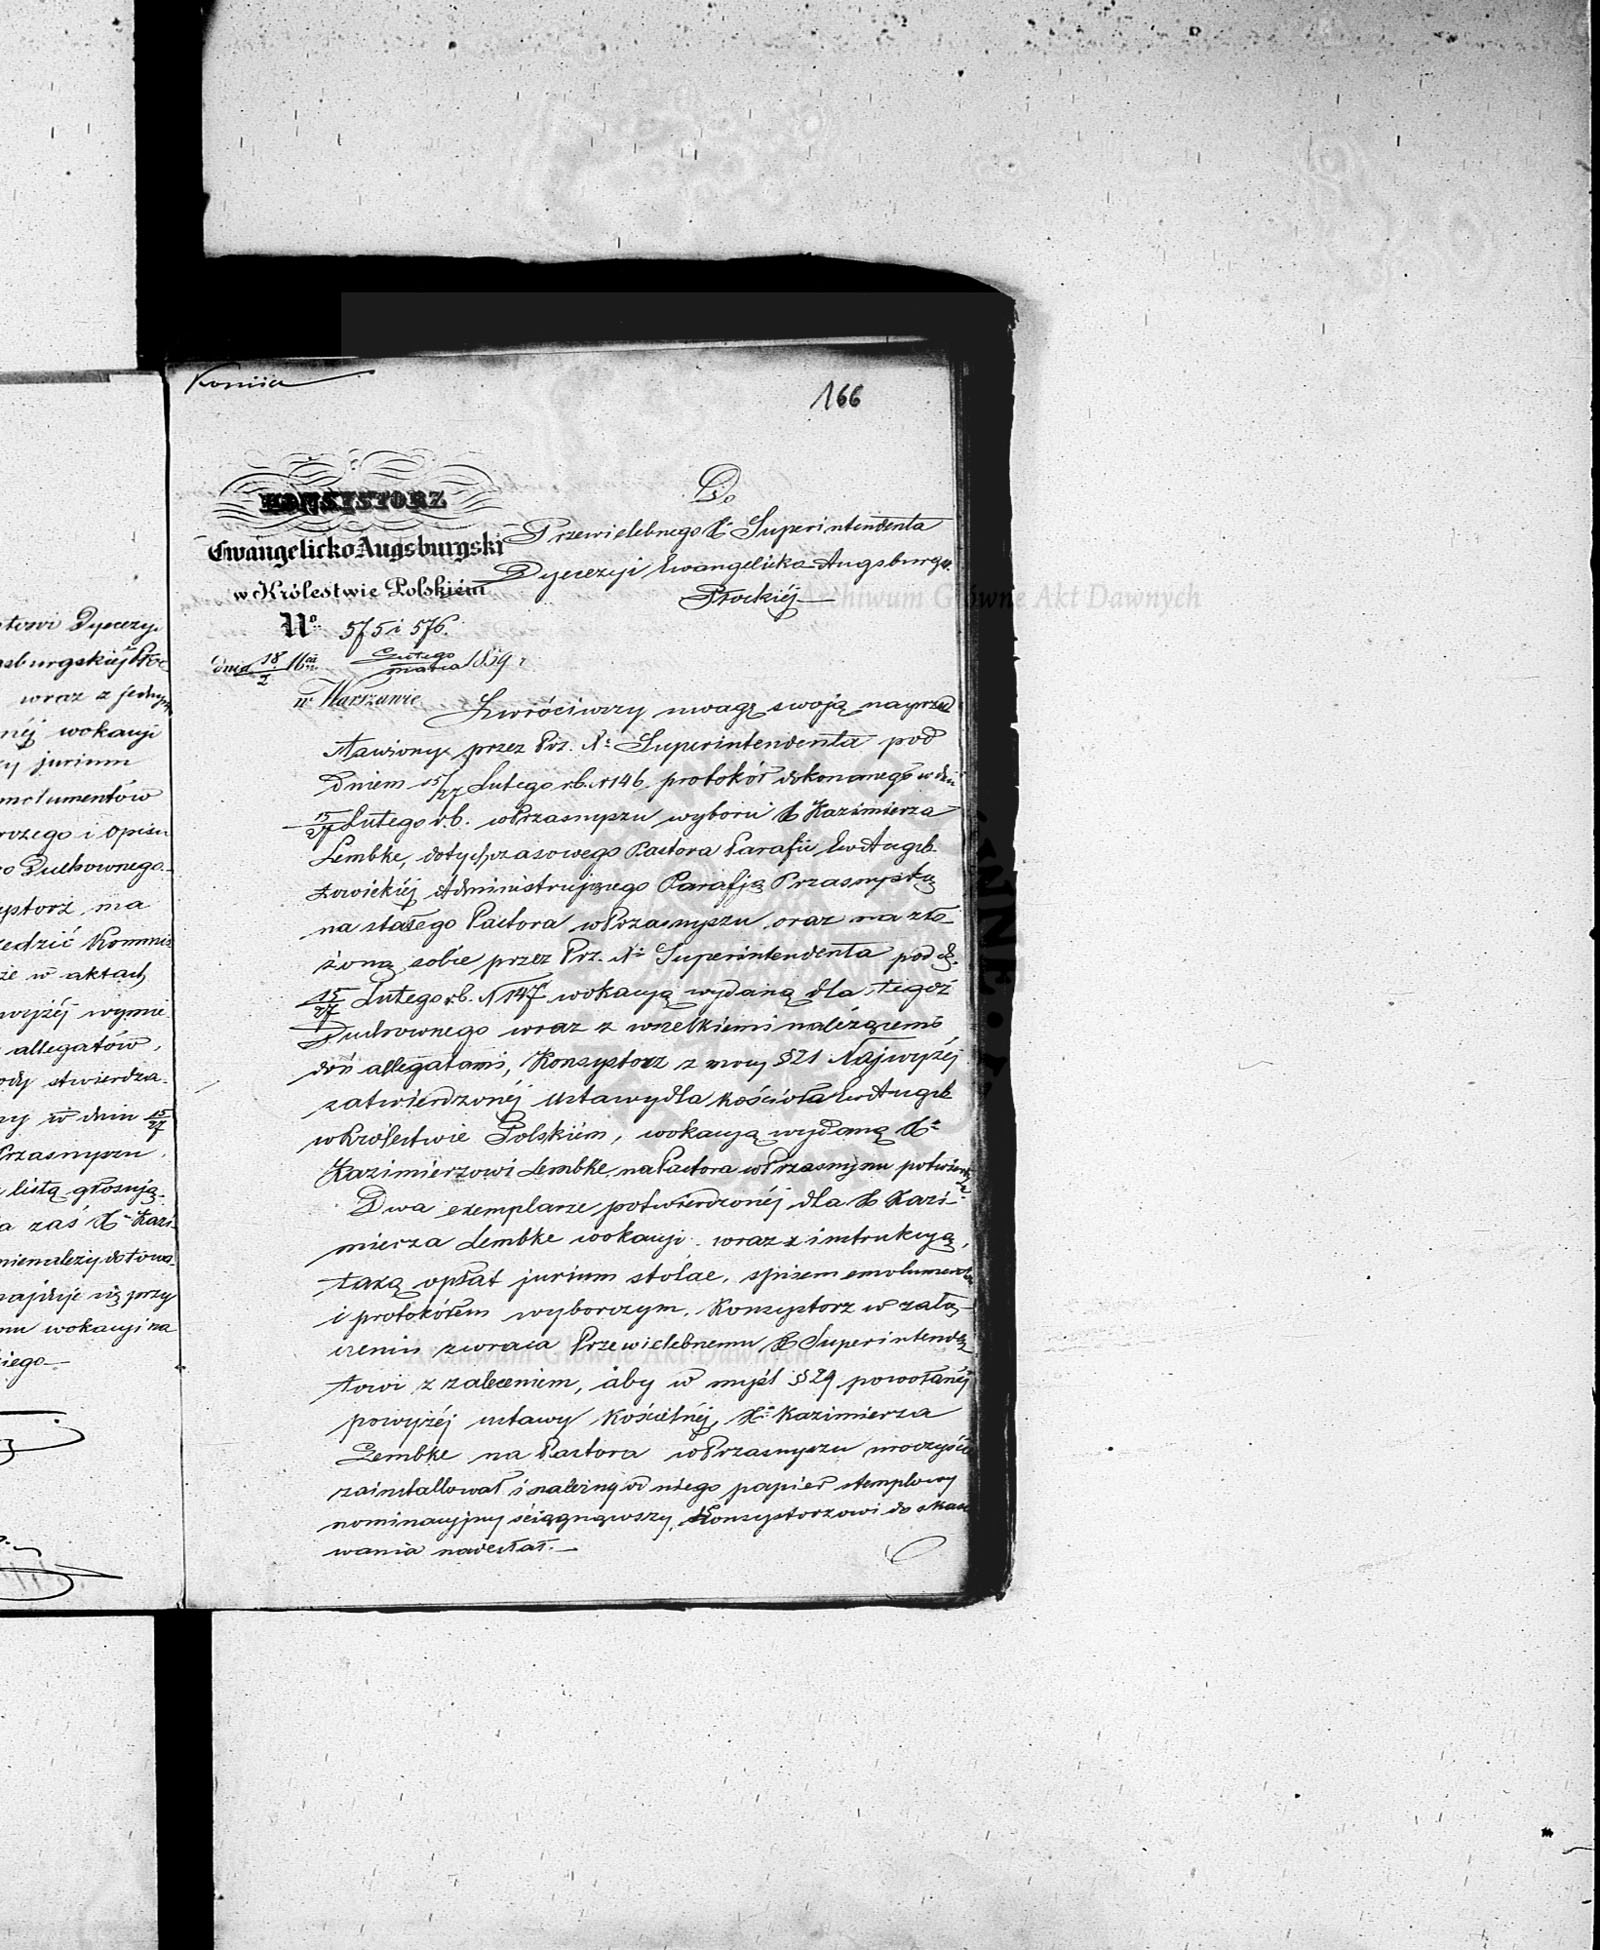 towi Dyecezyi
wraz z jednym
nej wokacyi
jurium
emolumentów
czego i opisu
o Duchownego
ma
w aktach
wyżej wymie
allegatów,
stwierdza
w dniu 15/27
Przasnyszu
listą głosują
zaś X. Kazi
wokacyi na
iego
Kopiia
166
KONSYSTORZ
Ewangelicko Augsburgski
w Królestwie Polskiém
No. 575 i 576.
dnia 18/2 Lutego/Marca 1859 r
w Warszawie
Do
Przewielebnego X. Superintendenta
Dyecezyi Ewangelicko-Augsburgs.
Płockiéj
Zwróciwszy uwagę swoją na przed
stawiony przez Prz. X. Superintendenta pod
Dniem 15/27 Lutego r.b. N 146 protokół dokonanego w dniu
15/27 Lutego r.b. w Przasnyszu wyboru X Kazimierza
Lembke, dotychczasowego Pastora Parafii Ew Augsb.
Łowickiéj Administrującego Parafją Przasnyską
na stałego Pastora w Przasnyszu oraz na zło
żoną sobie przez Prz. X. Superintendenta pod d.
15/27 Lutego r.b. N 147 wokacyą wydaną dla tegoż
Duchownego wraz z wszelkiemi należącemi
doń allegatami, Konsystorz z mocy § 21 Najwyżéj
zatwierdzonéj Ustawy dla kościoła Ew Augsb
w Królestwie Polskiém, wokacyą wydaną X.
Kazimierzowi Lembke, na Pastora w Przasnyszu potwierdza.
Dwa exemplarze potwierdzonéj dla X Kazi-
mierza Lembke wokacyi wraz z instrukcyą,
taxą opłat jurium stolae, spisem emolumentów
i protokółem wyborczym, Konsystorz w załą-
czeniu zwraca Przewielebnemu X Superintenden
towi z zaleceniem, aby w myśl § 29 powołanéj
powyżéj ustawy Kościelnéj, X. Kazimierza
Lembke na Pastora w Przasnyszu uroczyście
zainstallował i należny od niego papier stemplowy
nominacyjny ściągnąwszy, Konsystorzowi do skaso
wania nadesłał.
Archiwum Główne Akt Dawnych
Archiwum Główne Akt Dawnych